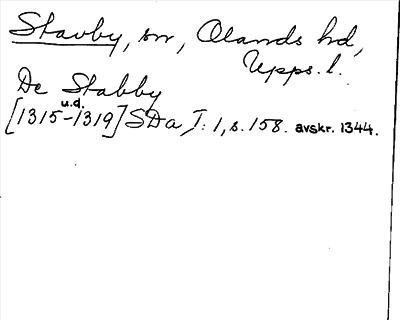 Stavby, sn, Olands hd,
Upps. l.
De Stabby
u.d.
[1315-1319] SDa I: 1, s. 158. avskr. 1344.